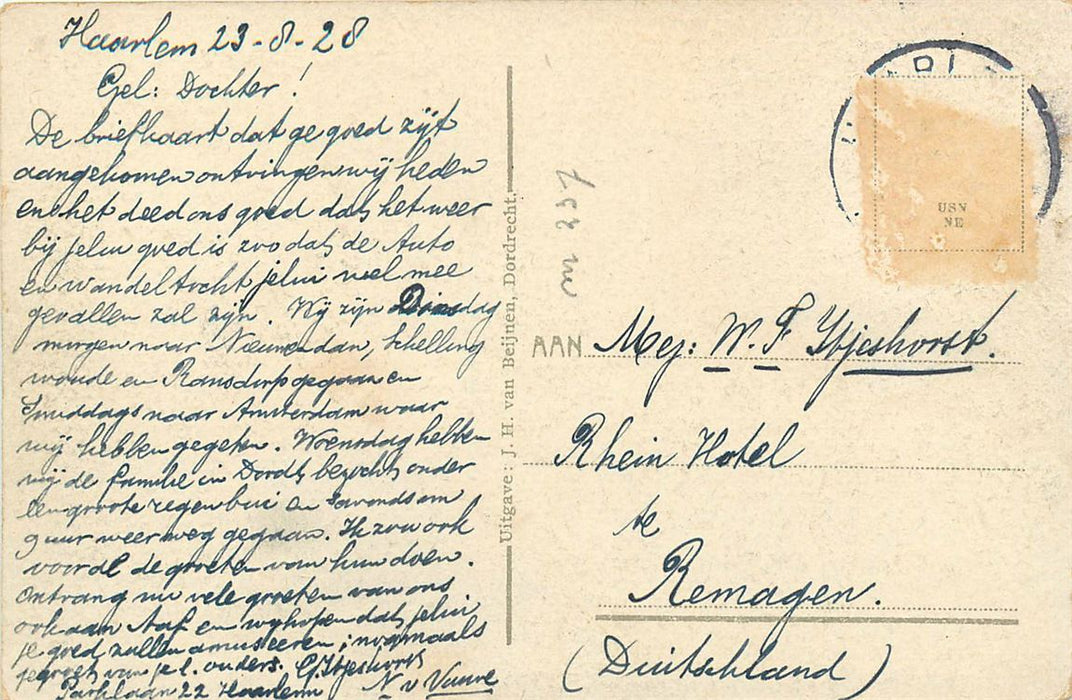 Haarlem 23-8-28
Gel: Dochter!
De briefkaart dat ge goed zijt
aangekomen ontvingen wij heden
en het deed ons goed dat het weer
bij jelui goed is zoo dat de Auto
en wandeltocht jelui veel mee
gevallen zal zijn. Wij zijn Dinsdag
morgen naar Nieuwendam, Schelling
woude en Ransdorp gegaan en
Smiddags naar Amsterdam waar
wij hebben gegeten. Woensdag hebben
wij de familie in Dordt bezocht onder
een groote regenbui en savonds om
9 uur weer weg gegaan. Ik zou ook
voor al de groeten van hun doen.
Ontvang nu vele groeten van ons
ook aan Aaf en wij hopen dat jelui
je goed zullen amuseeren; nogmaals
gegroet van je l. ouders. G. IJtjeshorst
Parklaan 22 Haarlem N v Vuure
Uitgave: J. H. van Beijnen, Dordrecht.
m 257
USN
NE
AAN Mej: W. F. IJtjeshorst.
Rhein Hotel
te
Remagen.
(Duitschland)